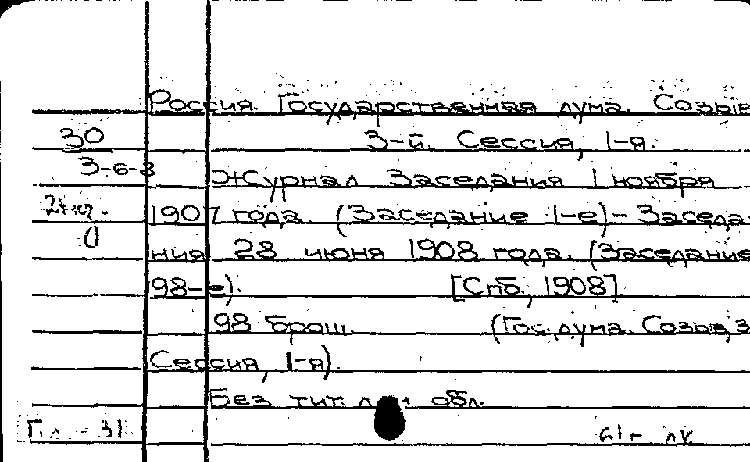 Россия. Государственная дума. Созыв
30 3-й. Сессия, 1-я.
3-6-3 Журнал Заседания 1 ноября
1907 года. (Заседание 1-е) - Заседа-
ния 28 июня 1908 года. (Заседание
98-е). [Спб., 1908]
98 брош. (Гос. дума. Созыв 3
Сессия, 1-я).
Без тит. л. и обл.